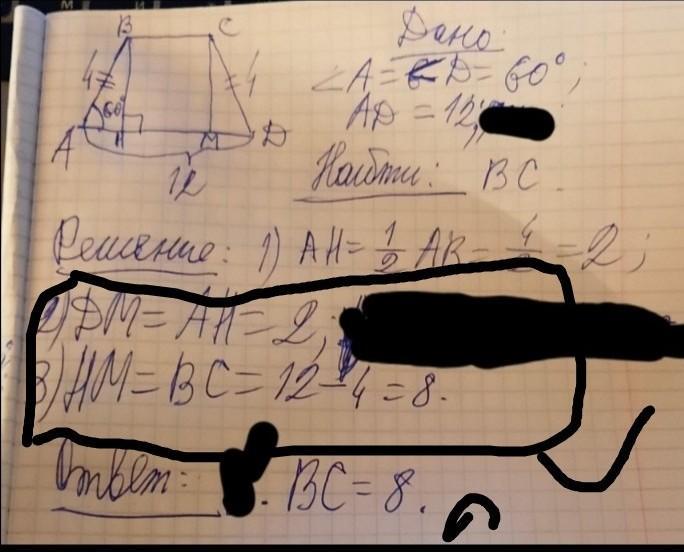 B C
Дано:
4 4
∠A = ∠D = 60°;
60°
AD = 12;
A H M D
12
Найти: BC.
Решение: 1) AH = 1/2 AB = 4/2 = 2;
2) DM = AH = 2;
3) HM = BC = 12 - 4 = 8.
Ответ: BC = 8.